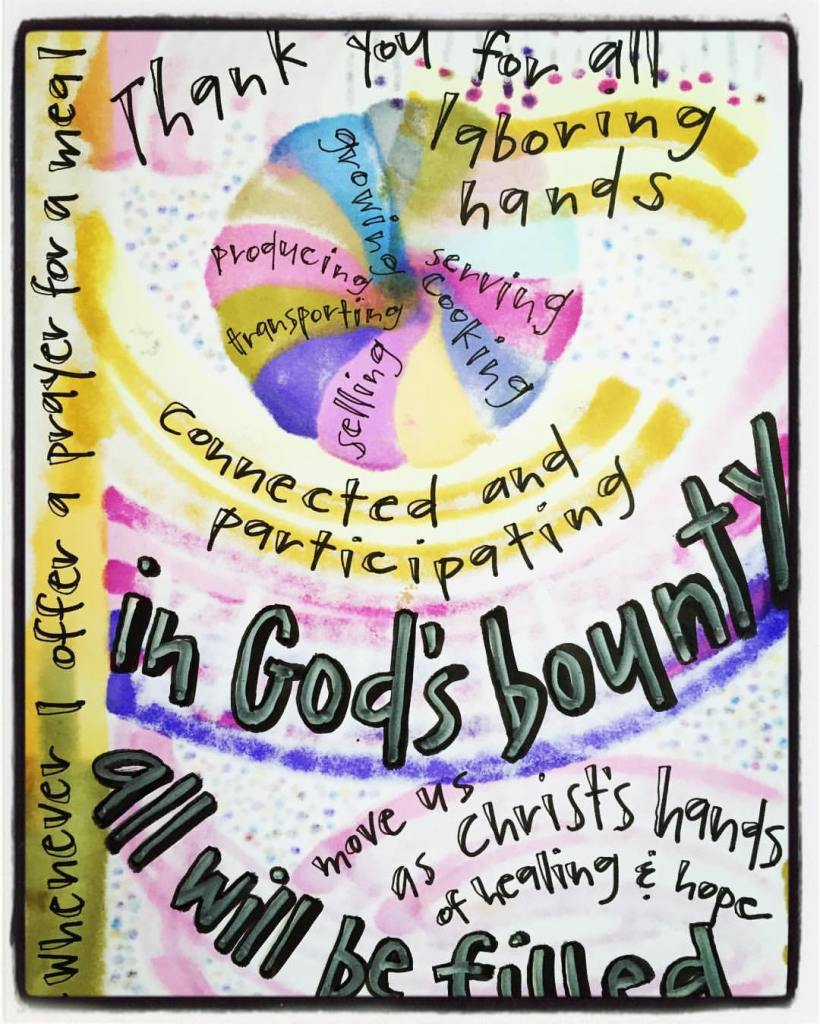 Whenever I offer a prayer for a meal
Thank you for all
laboring
hands
growing
producing
transporting
selling
serving
cooking
connected and
participating
in God's bounty
all will be filled
move us
as Christ's hands
of healing & hope